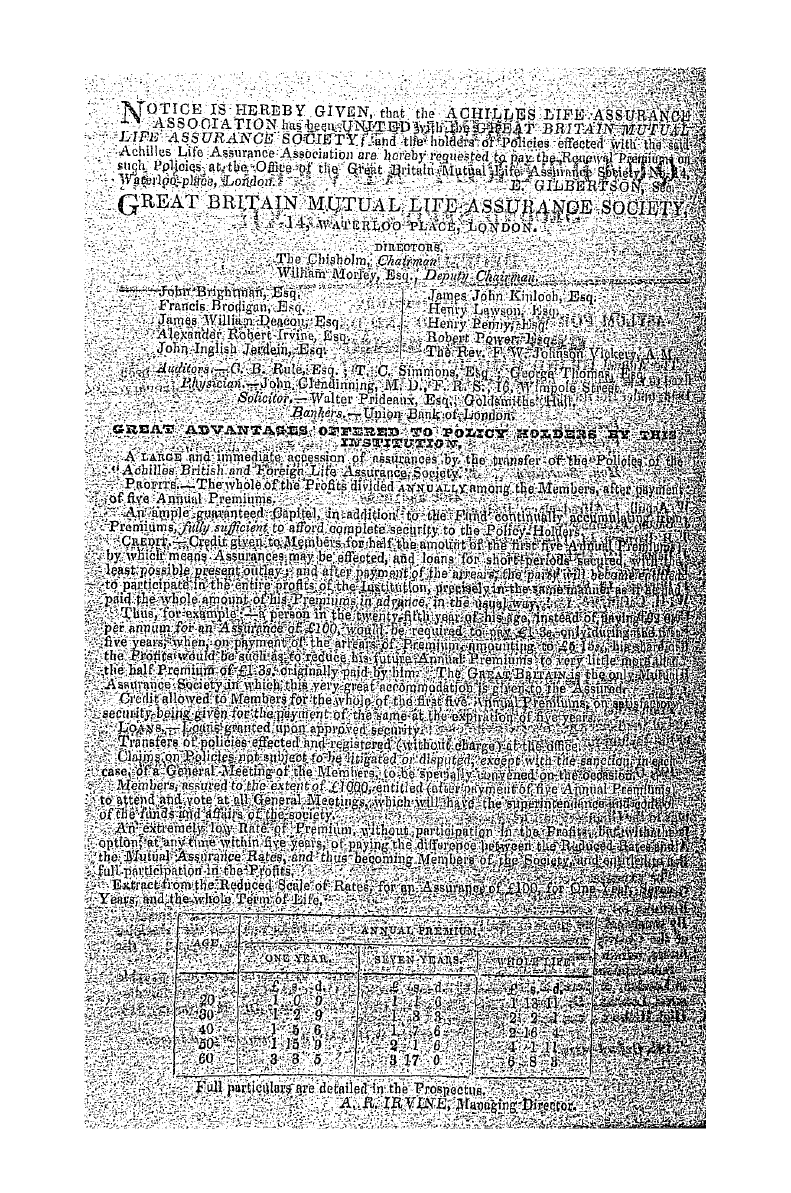 NOTICE IS HEREBY GIVEN, that the ACHILLES LIFE ASSURANCE
ASSOCIATION has been UNITED with the GREAT BRITAIN MUTUAL
LIFE ASSURANCE SOCIETY; and the holders of Policies effected with the said
Achilles Life Assurance Association are hereby requested to pay the Renewal Premiums on
such Policies at the Office of the Great Britain Mutual Life Assurance Society, No. 14,
Waterloo-place, London.
E. GILBERTSON, Sec.
GREAT BRITAIN MUTUAL LIFE ASSURANCE SOCIETY,
14, WATERLOO PLACE, LONDON.
DIRECTORS.
The Chisholm, Chairman
William Morley, Esq., Deputy Chairman.
John Brightman, Esq.
Francis Brodigan, Esq.
James William Deacon, Esq.
Alexander Robert Irvine, Esq.
John Inglish Jerdein, Esq.
James John Kinloch, Esq.
Henry Lawson, Esq.
Henry Penny, Esq.
Robert Power, Esq.
The Rev. F. W. Johnson Vickery, A.M.
Auditors.—C. B. Rule, Esq.; T. C. Simmons, Esq.; George Thomas, Esq.
Physician.—John Glendinning, M. D., F. R. S., 16, Wimpole Street
Solicitor.—Walter Prideaux, Esq., Goldsmiths' Hall.
Bankers.—Union Bank of London.
GREAT ADVANTAGES OFFERED TO POLICY HOLDERS BY THIS
INSTITUTION.
A LARGE and immediate accession of assurances by the transfer of the Policies of the
"Achilles British and Foreign Life Assurance Society."
PROFITS.—The whole of the Profits divided ANNUALLY among the Members, after payment
of five Annual Premiums.
An ample guaranteed Capital, in addition to the Fund continually accumulating from
Premiums, fully sufficient to afford complete security to the Policy Holders.
CREDIT.—Credit given to Members for half the amount of the first five Annual Premiums,
by which means Assurances may be effected, and loans for short periods secured, with the
least possible present outlay; and after payment of the arrears, the party will become entitled
to participate in the entire profits of the Institution, precisely in the same manner as if he had
paid the whole amount of his Premiums in advance, in the usual way.
Thus, for example:—a person in the twenty-fifth year of his age, instead of paying
per annum for an Assurance of £100, would be required to pay £1 3s. only during the first
five years, when, on payment of the arrears of Premium, amounting to £5 15s., his share of
the Profits would be such as to reduce his future Annual Premiums to very little more than
the half Premium of £1 3s. originally paid by him. The GREAT BRITAIN is the only Mutual
Assurance Society in which this very great accommodation is given to the Assured.
Credit allowed to Members for the whole of the first five Annual Premiums, on satisfactory
security being given for the payment of the same at the expiration of five years.
LOANS.—Loans granted upon approved security.
Transfers of policies effected and registered (without charge) at the office.
Claims on Policies not subject to be litigated or disputed, except with the sanction, in each
case, of a General Meeting of the Members, to be specially convened on the occasion.
Members, assured to the extent of £1000, entitled (after payment of five Annual Premiums)
to attend and vote at all General Meetings, which will have the superintendence and control
of the funds and affairs of the society.
An extremely low Rate of Premium, without participation in the Profits, but with the
option, at any time within five years, of paying the difference between the Reduced Rates and
the Mutual Assurance Rates, and thus becoming Members of the Society, and entitled to
full participation in the Profits.
Extract from the Reduced Scale of Rates, for an Assurance of £100, for One Year, Seven
Years, and the whole Term of Life.
AGE. ANNUAL PREMIUM.
ONE YEAR. SEVEN YEARS. WHOLE LIFE.
£ s. d. £ s. d. £ s. d.
20 1 0 9 1 1 6 1 13 11
30 1 2 9 1 3 3 2 2 1
40 1 5 6 1 7 6 2 16 4
50 1 15 9 2 1 6 4 1 11
60 3 3 5 3 17 0 6 8 3
Full particulars are detailed in the Prospectus.
A. R. IRVINE, Managing Director.